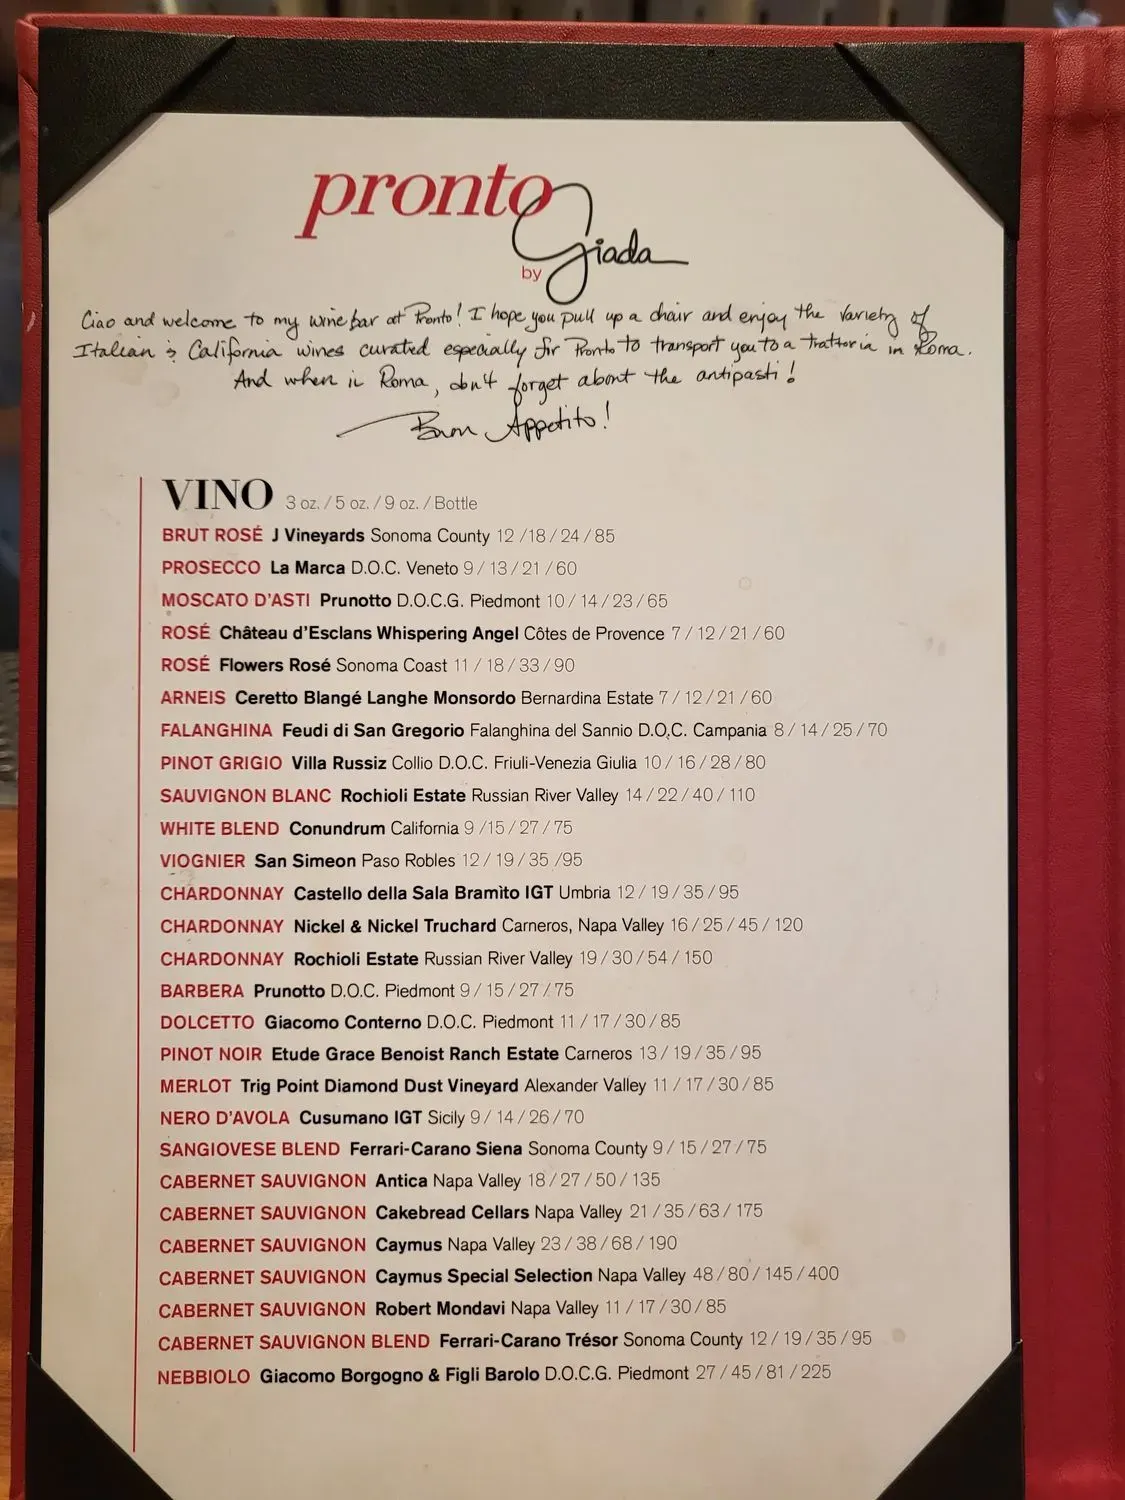 pronto
by Giada
Ciao and welcome to my wine bar at Pronto! I hope you pull up a chair and enjoy the variety of
Italian & California wines curated especially for Pronto to transport you to a trattoria in Roma.
And when in Roma, don't forget about the antipasti!
Buon Appetito!
VINO 3 oz. / 5 oz. / 9 oz. / Bottle
BRUT ROSÉ J Vineyards Sonoma County 12 /18 / 24 / 85
PROSECCO La Marca D.O.C. Veneto 9 / 13 / 21 / 60
MOSCATO D'ASTI Prunotto D.O.C.G. Piedmont 10 / 14 / 23 / 65
ROSÉ Château d'Esclans Whispering Angel Côtes de Provence 7 / 12 / 21 / 60
ROSÉ Flowers Rosé Sonoma Coast 11 / 18 / 33 / 90
ARNEIS Ceretto Blangé Langhe Monsordo Bernardina Estate 7 / 12 / 21 / 60
FALANGHINA Feudi di San Gregorio Falanghina del Sannio D.O.C. Campania 8 / 14 / 25 / 70
PINOT GRIGIO Villa Russiz Collio D.O.C. Friuli-Venezia Giulia 10 / 16 / 28 / 80
SAUVIGNON BLANC Rochioli Estate Russian River Valley 14 / 22 / 40 / 110
WHITE BLEND Conundrum California 9 /15 / 27 / 75
VIOGNIER San Simeon Paso Robles 12 / 19 / 35 /95
CHARDONNAY Castello della Sala Bramìto IGT Umbria 12 / 19 / 35 / 95
CHARDONNAY Nickel & Nickel Truchard Carneros, Napa Valley 16 / 25 / 45 / 120
CHARDONNAY Rochioli Estate Russian River Valley 19 / 30 / 54 / 150
BARBERA Prunotto D.O.C. Piedmont 9 / 15 / 27 / 75
DOLCETTO Giacomo Conterno D.O.C. Piedmont 11 / 17 / 30 / 85
PINOT NOIR Etude Grace Benoist Ranch Estate Carneros 13 / 19 / 35 / 95
MERLOT Trig Point Diamond Dust Vineyard Alexander Valley 11 / 17 / 30 / 85
NERO D'AVOLA Cusumano IGT Sicily 9 / 14 / 26 / 70
SANGIOVESE BLEND Ferrari-Carano Siena Sonoma County 9 / 15 / 27 / 75
CABERNET SAUVIGNON Antica Napa Valley 18 / 27 / 50 / 135
CABERNET SAUVIGNON Cakebread Cellars Napa Valley 21 / 35 / 63 / 175
CABERNET SAUVIGNON Caymus Napa Valley 23 / 38 / 68 / 190
CABERNET SAUVIGNON Caymus Special Selection Napa Valley 48 / 80 / 145 / 400
CABERNET SAUVIGNON Robert Mondavi Napa Valley 11 / 17 / 30 / 85
CABERNET SAUVIGNON BLEND Ferrari-Carano Trésor Sonoma County 12 / 19 / 35 / 95
NEBBIOLO Giacomo Borgogno & Figli Barolo D.O.C.G. Piedmont 27 / 45 / 81 / 225